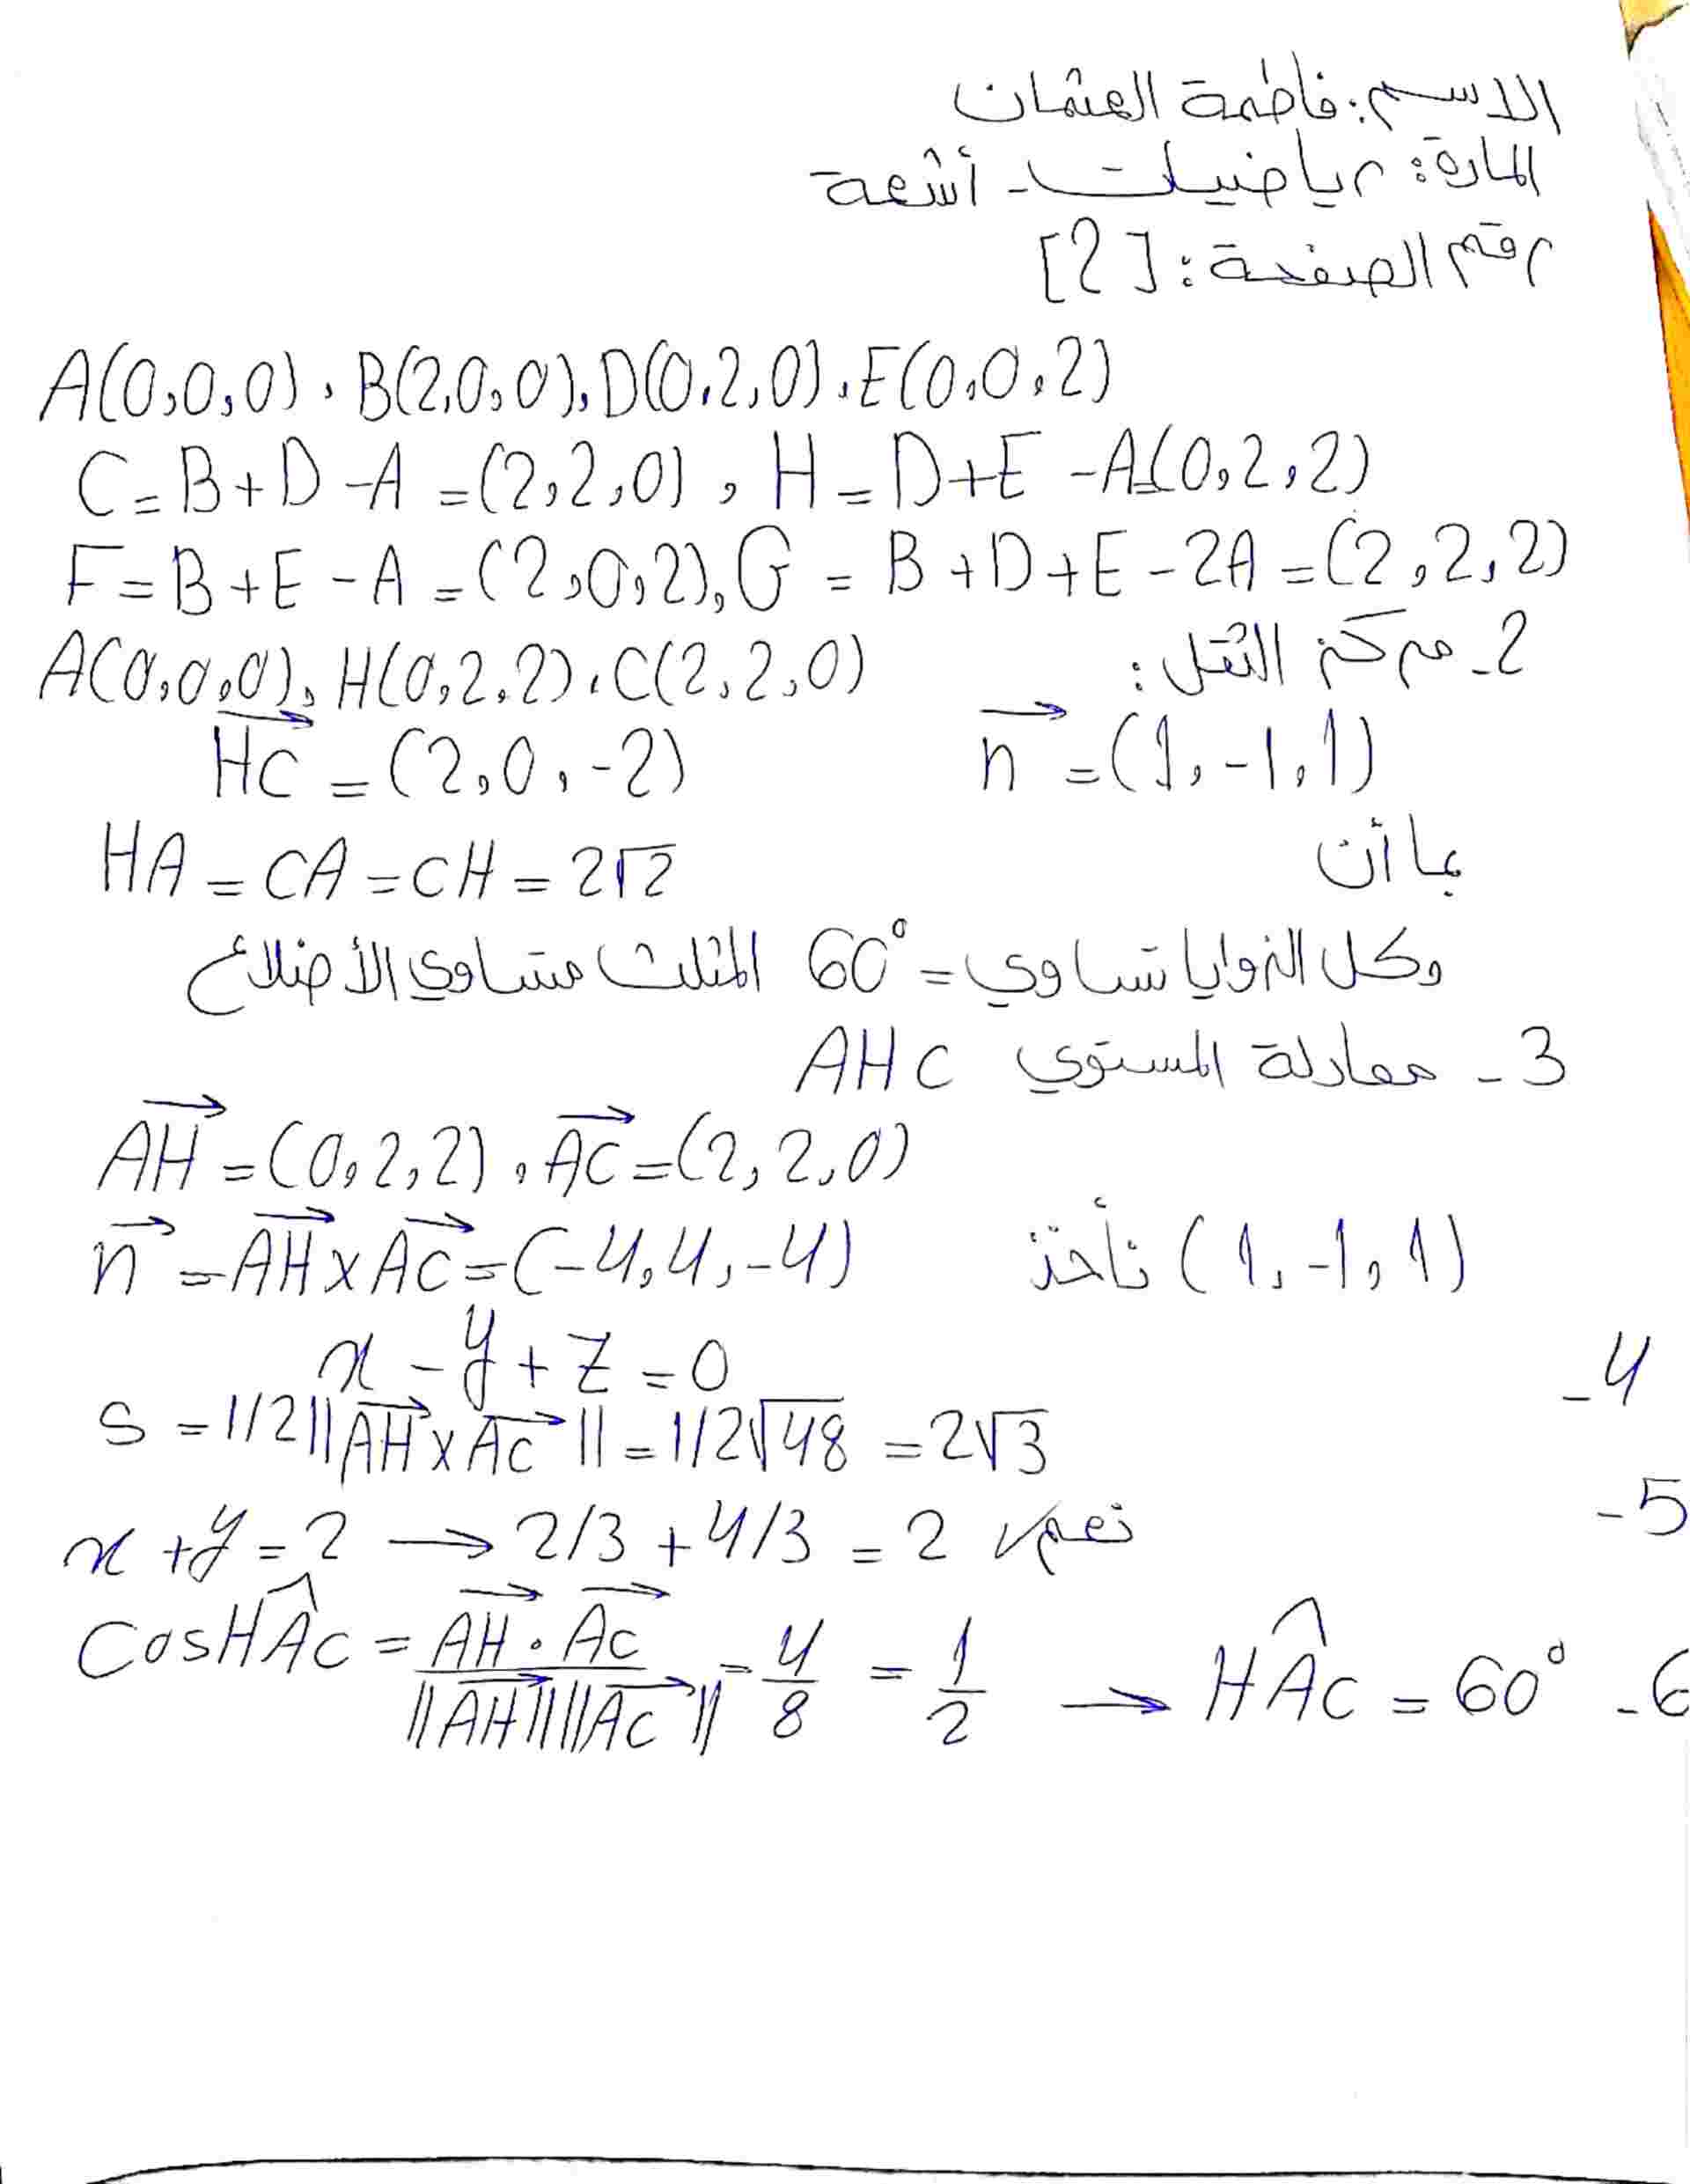 الاسم: فاطمة العثمان
المادة: رياضيات - أشعة
رقم الصفحة: [2]
A(0,0,0), B(2,0,0), D(0,2,0), E(0,0,2)
C = B + D - A = (2,2,0), H = D + E - A = (0,2,2)
F = B + E - A = (2,0,2), G = B + D + E - 2A = (2,2,2)
2- مركز الثقل:
A(0,0,0), H(0,2,2), C(2,2,0)
HC→ = (2,0,-2) n→ = (1,-1,1)
بما أن HA = CA = CH = 2√2
وكل الزوايا تساوي = 60° المثلث متساوي الأضلاع
3- معادلة المستوي AHC
AH→ = (0,2,2), AC→ = (2,2,0)
n→ = AH→ x AC→ = (-4,4,-4) نأخذ (1,-1,1)
x - y + z = 0
4- s = 1/2||AH→ x AC→|| = 1/2√48 = 2√3
5- x + y = 2 → 2/3 + 4/3 = 2 ✓ نعم
6- Cos HÂC = AH→ . AC→ / ||AH→|| ||AC→|| = 4/8 = 1/2 → HÂC = 60°